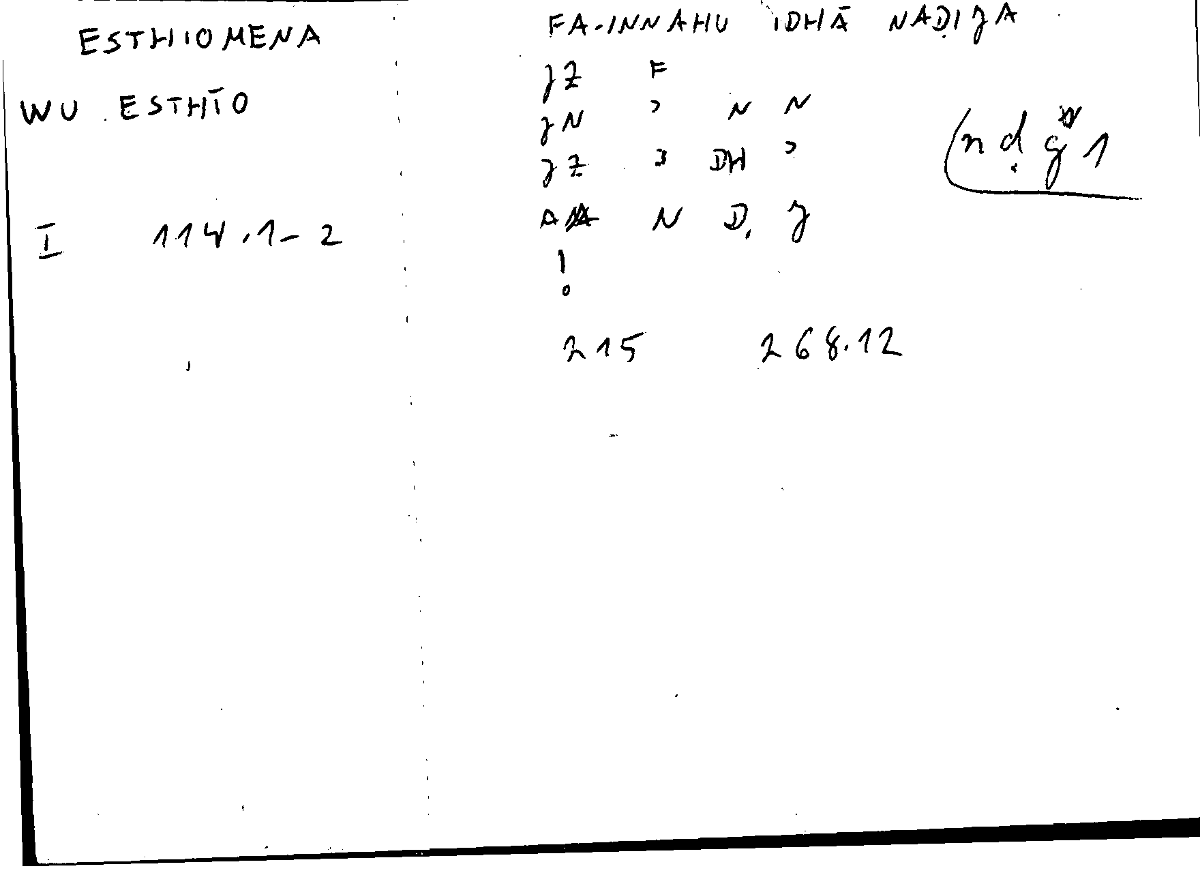 ESTHIOMENA
WU ESTHĪO
I 114.1-2
FA-INNAHU IDHĀ NAḌIJA
JZ F
JN ʾ N N
JZ ʾ DH ʾ
A N Ḍ J
!
215 268.12
(n ḍ ǧ 1